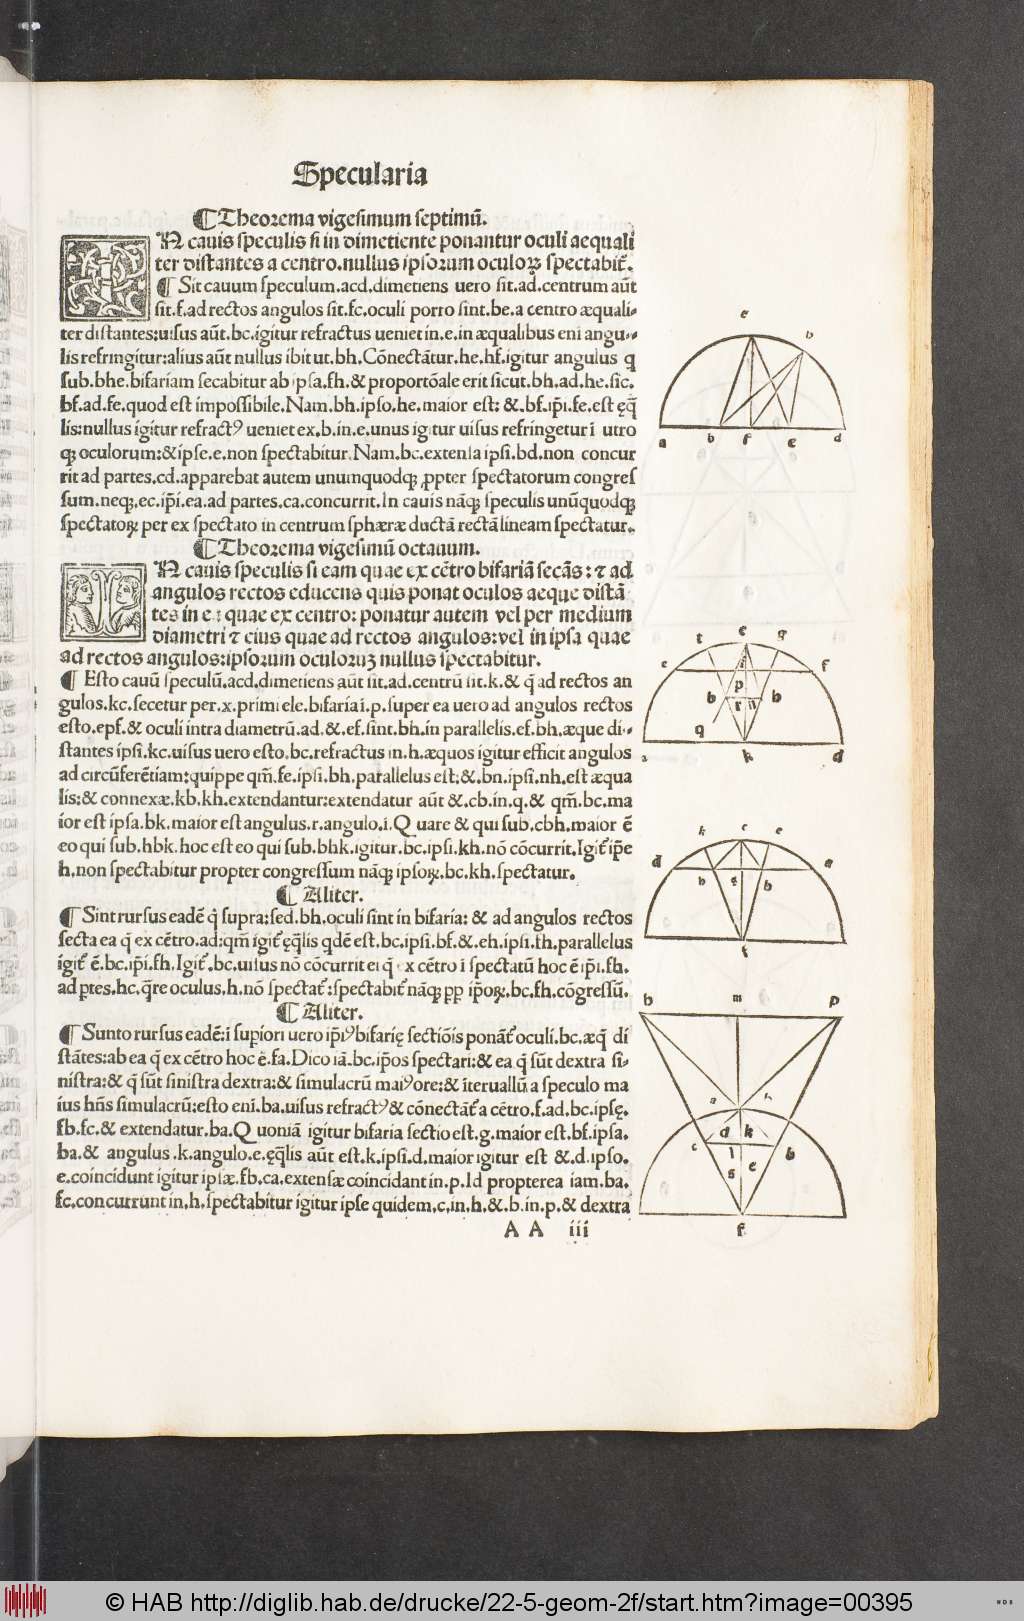 Specularia
¶ Theorema vigesimum septimũ.
IN cauis speculis si in dimetiente ponantur oculi aequali
ter distantes a centro. nullus ipsorum oculoꝝ spectabit̃.
¶ Sit cauum speculum.acd,dimetiens uero sit.ad.centrum aũt
sit.f.ad rectos angulos sit.fc.oculi porro sint.be.a centro æquali-
ter distantes:uisus aũt.bc.igitur refractus ueniet in.e.in æqualibus eni angu-
lis refringitur:alius aũt nullus ibit ut.bh.Cõnectãtur.he.hf.igitur angulus q̃
sub.bhe.bifariam secabitur ab ipsa.fh.& proportõale erit sicut.bh.ad.he.sic.
bf.ad.fe.quod est impossibile.Nam.bh.ipso.he.maior est: &.bf.ip̃i.fe.est ęq̃
lis:nullus igitur refractꝰ ueniet ex.b.in.e.unus igitur uisus refringetur ĩ utro
qꝫ oculorum:& ipse.e.non spectabitur.Nam.bc.extensa ipsi.bd.non concur
rit ad partes.cd.apparebat autem unumquodqꝫ ꝓpter spectatorum congres
sum.neqꝫ.ec.ip̃i.ea.ad partes.ca.concurrit.In cauis nãqꝫ speculis unũquodqꝫ
spectatoꝝ per ex spectato in centrum sphæræ ductã rectã lineam spectatur.
¶ Theorema vigesimũ octauum.
IN cauis speculis si eam quae ex cẽtro bifariã secãs: ⁊ ad
angulos rectos educens quis ponat oculos aeque distã
tes in e: quae ex centro: ponatur autem vel per medium
diametri ⁊ eius quae ad rectos angulos:vel in ipsa quae
ad rectos angulos:ipsorum oculoruꝫ nullus spectabitur.
¶ Esto cauũ speculũ.acd,dimetiens aũt sit.ad.centrũ sit.k.& q̃ ad rectos an
gulos.kc.secetur per.x.primi ele.bifariã i.p.super ea uero ad angulos rectos
esto.epf.& oculi intra diametrũ.ad.&.ef.sint.bh.in parallelis.ef.bh,æque di-
stantes ipsi.kc.uisus uero esto.bc.refractus in.h.æquos igitur efficit angulos
ad circũferẽtiam:quippe qm̃.fe.ipsi.bh.parallelus est:&.bn.ipsi.nh.est æqua
lis:& connexæ.kb.kh.extendantur:extendatur aũt &.cb.in.q.& qm̃.bc.ma
ior est ipsa.bk.maior est angulus.r.angulo.i.Quare & qui sub.cbh.maior ẽ
eo qui sub.hbk.hoc est eo qui sub.bhk.igitur.bc.ipsi.kh.nõ cõcurrit.Igit̃ ip̃e
h.non spectabitur propter congressum nãqꝫ ipsoꝝ.bc.kh.spectatur.
¶ Aliter.
¶ Sint rursus eadẽ q̃ supra:sed.bh.oculi sint in bifaria: & ad angulos rectos
secta ea q̃ ex cẽtro.ad:qm̃ igit̃ ęq̃lis qdẽ est.bc.ipsi.bf.&.eh.ipsi.fh.parallelus
igit̃ ẽ.bc.ip̃i.fh.Igit̃.bc.uisus nõ cõcurrit ei q̃ ex cẽtro ĩ spectatũ hoc ẽ ip̃i.fh.
ad ptes.hc.q̃re oculus.h.nõ spectat̃:spectabit̃ nãqꝫ pp ip̃oꝝ.bc.fh.cõgressũ.
¶ Aliter.
¶ Sunto rursus eadẽ:ĩ supiori uero ip̃iꝰ bifarię sectiõis ponãt̃ oculi.bc.æq̃ di
stãtes:ab ea q̃ ex cẽtro hoc ẽ.fa.Dico iã.bc.ip̃os spectari:& ea q̃ sũt dextra si-
nistra:& q̃ sũt sinistra dextra:& simulacrũ maiꝰ ore:& ĩteruallũ a speculo ma
ius hñs simulacrũ:esto eni.ba.uisus refractꝰ & cõnectãt̃ a cẽtro.f.ad.bc.ipsę.
fb.fc.& extendatur.ba.Quoniã igitur bifaria sectio est.g.maior est.bf.ipsa.
ba.& angulus.k.angulo.e.ęq̃lis aũt est.k.ipsi.d.maior igitur est &.d.ipso.
e.coincidunt igitur ipsæ.fb.ca.extensæ coincidant in.p.Id propterea iam.ba.
fc.concurrunt in.h.spectabitur igitur ipse quidem.c.in.h.&.b.in.p.& dextra
A A iii
e
h
a b f e d
t e g
e i f
b p b
r n
q
a k d
k c e
d a
h g b
f
b m p
a h
d k
c l b
g e
f
© HAB http://diglib.hab.de/drucke/22-5-geom-2f/start.htm?image=00395